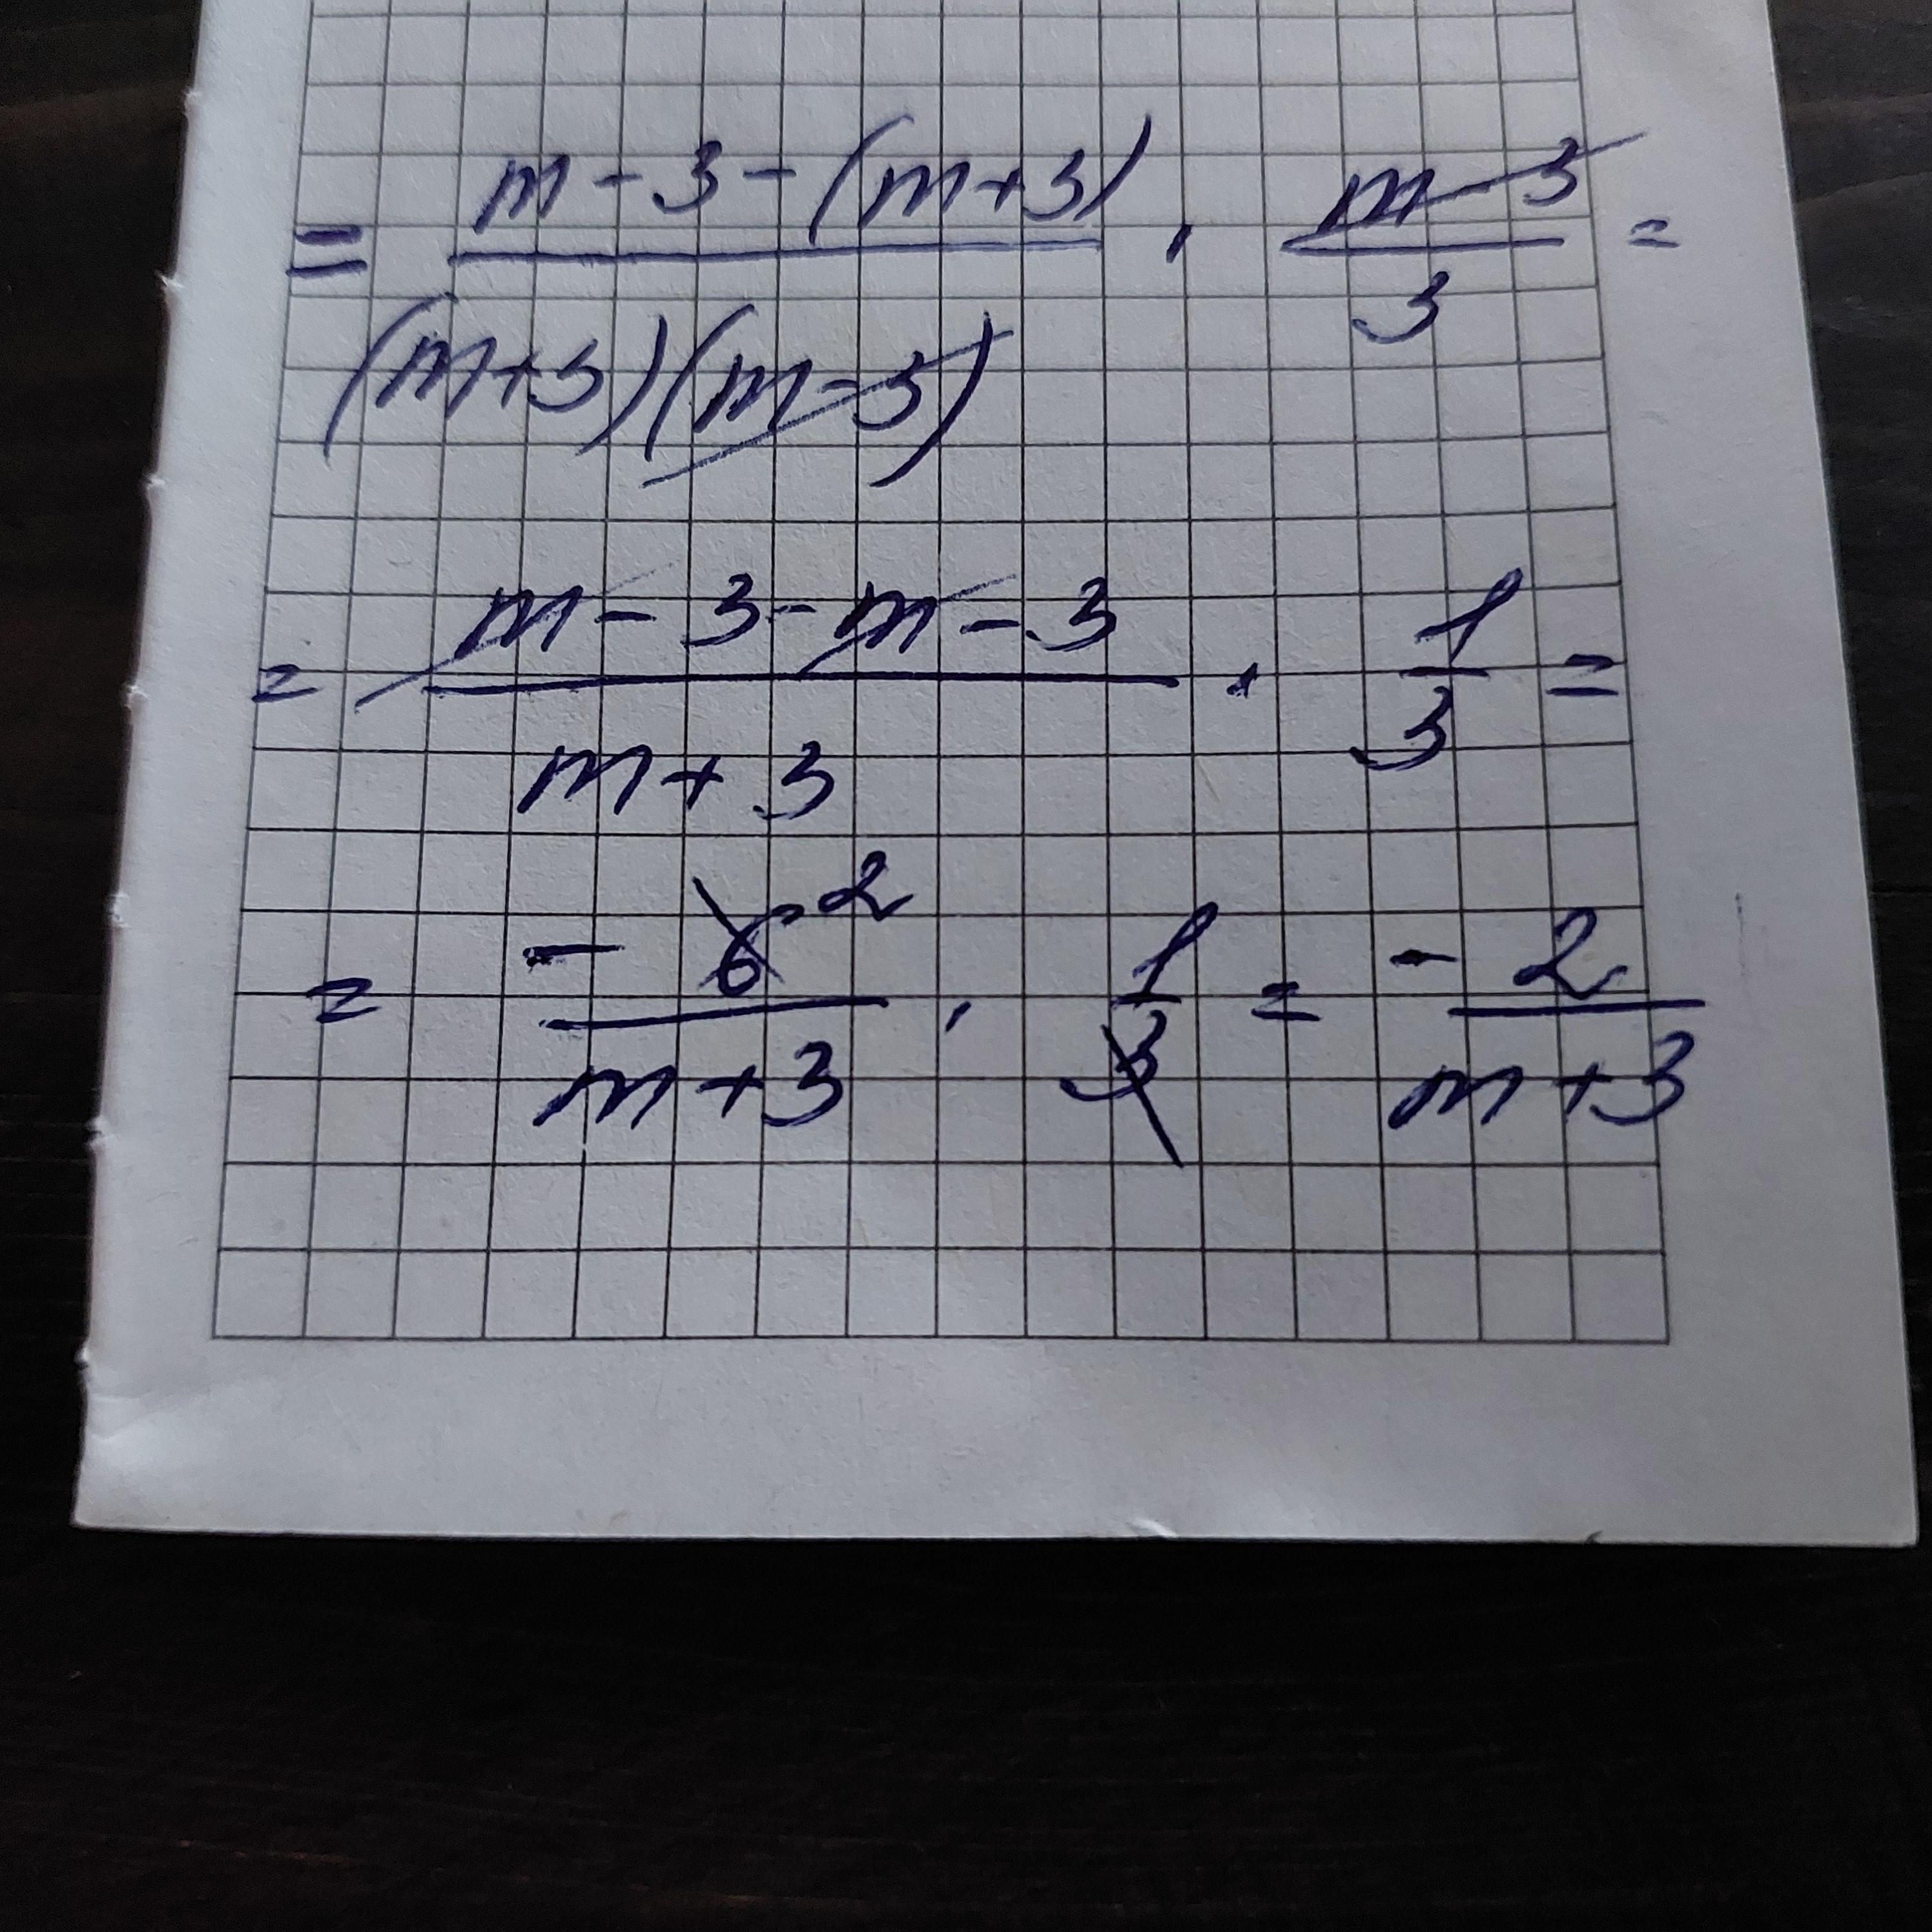 = (m - 3 - (m + 3)) / ((m + 3)(m - 3)) · (m - 3) / 3 =
= (m - 3 - m - 3) / (m + 3) · 1 / 3 =
= - 6 2 / (m + 3) · 1 / 3 = - 2 / (m + 3)